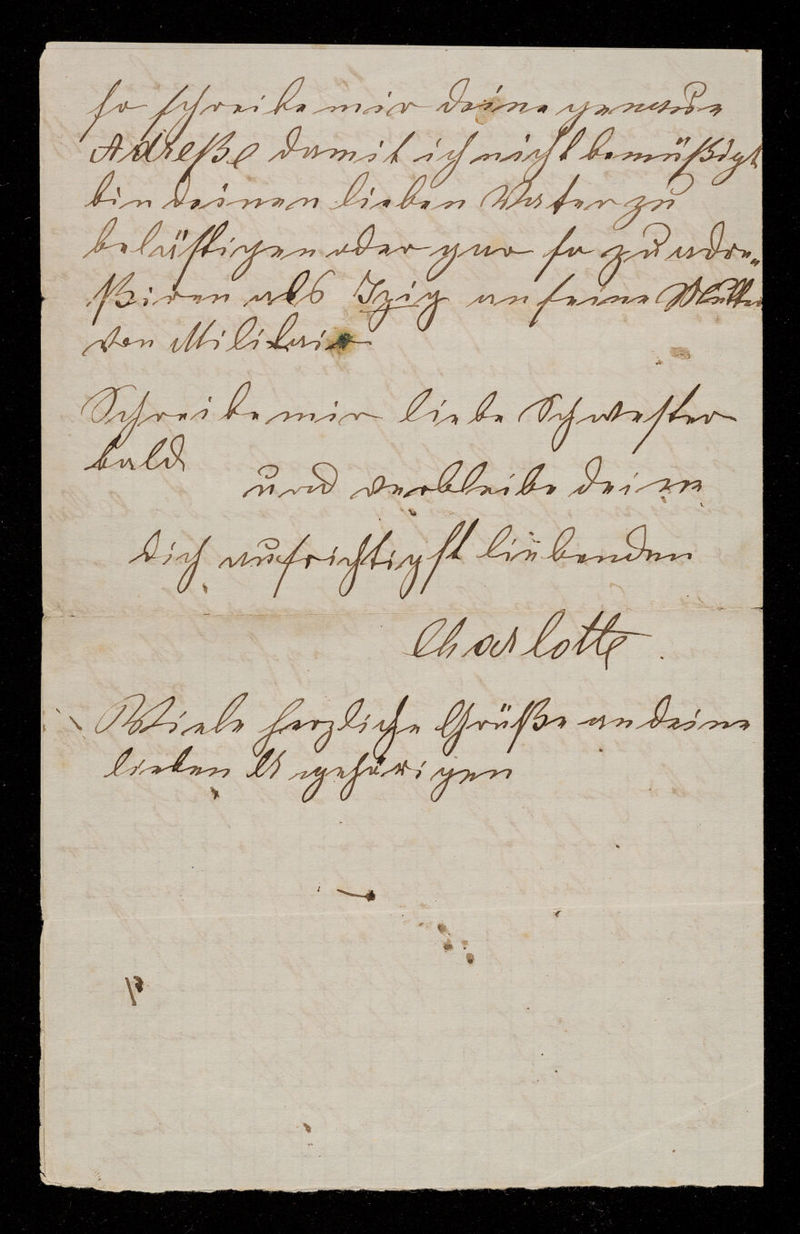 so schreibe mir deine genaue
Adreße damit ich nicht bemüßigt
bin deinen lieben Vater zu
belästigen oder gar so zu adre„
ßiren als Izig an seine Mutter
von Militair
Schreibe mir liebe Schwester
bald
und verbleibe deine
dich aufrichtigst liebenden
Charlotte.
Viele herzliche Grüße an deine
lieben Angehörigen